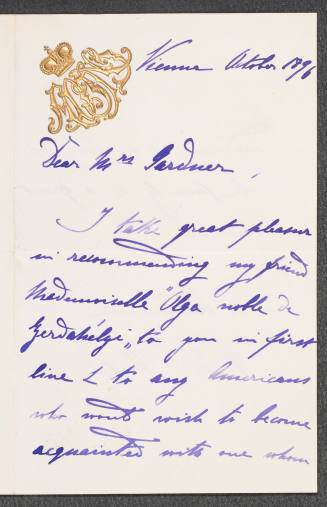 Vienna October 1896
Dear Mrs Gardner,
I take great pleasure
in recommending my friend
Mademoiselle "Olga noble de
Gerdahélgi„ to you in first
line & to any Americans
who would wish to become
acquainted with one whom